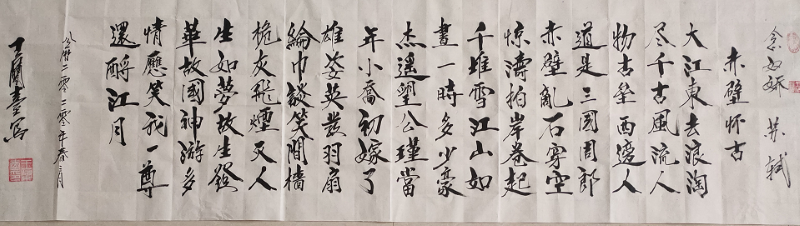 念奴娇 苏轼
赤壁怀古
大江東去浪淘
尽千古風流人
物古垒西邊人
道是三國周郎
赤壁亂石穿空
惊濤拍岸卷起
千堆雪江山如
畫一時多少豪
杰遥望公瑾當
年小喬初嫁了
雄姿英發羽扇
綸巾談笑間檣
桅灰飛煙灭人
生如夢故生發
華故國神游多
情應笑我一尊
還酹江月
二零二零年春月